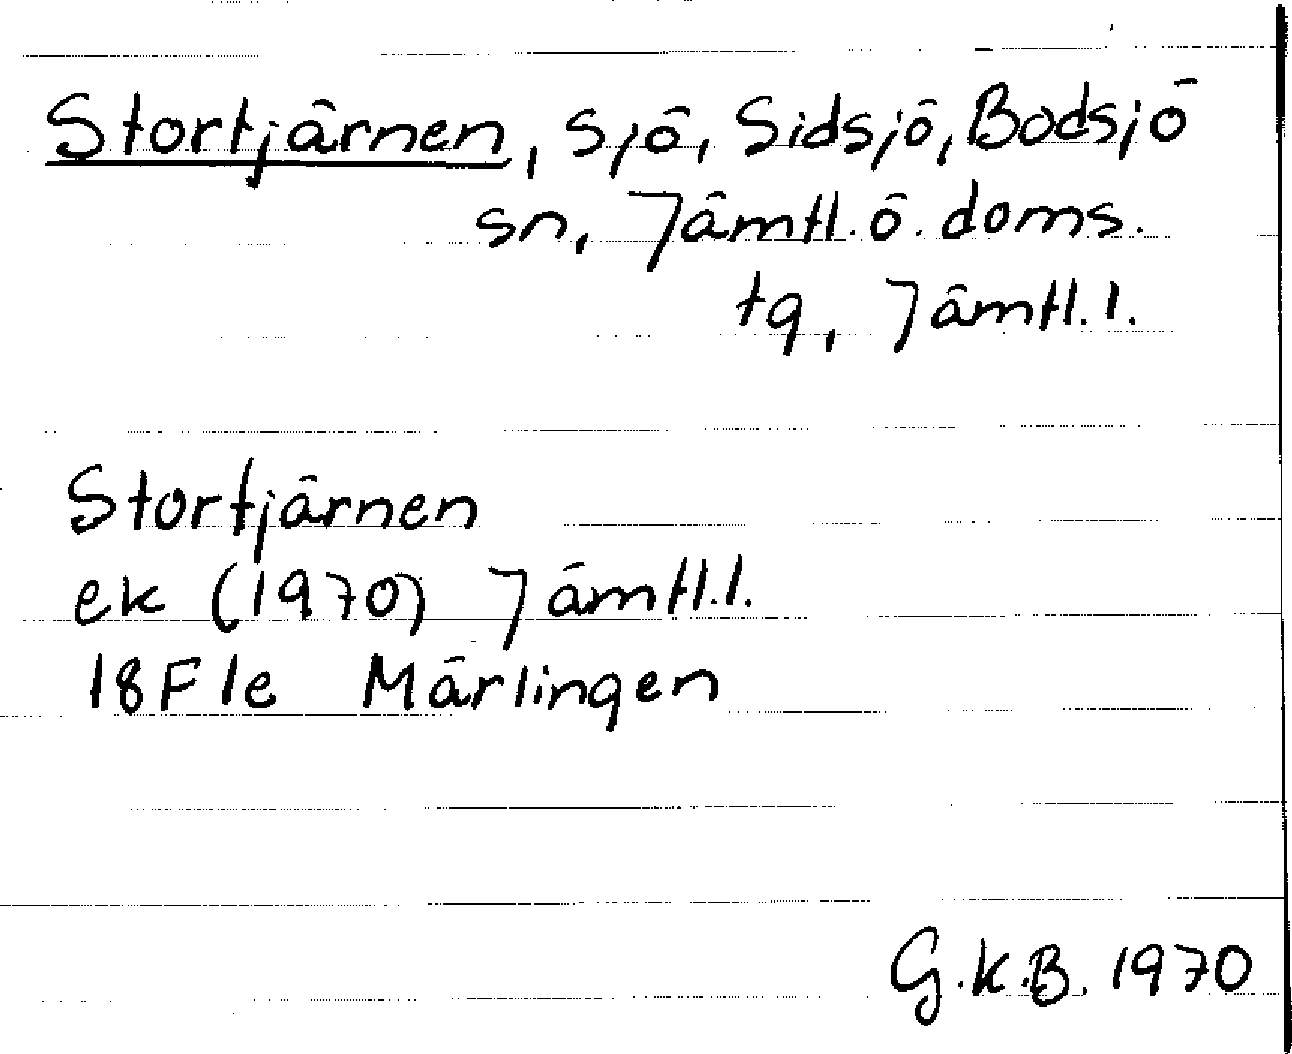 Stortjärnen, sjö, Sidsjö, Bodsjö
sn, Jämtl. ö. doms.
tg, Jämtl. l.
Stortjärnen
ek (1970) Jämtl. l.
18F 1e Märlingen
G.K.B. 1970